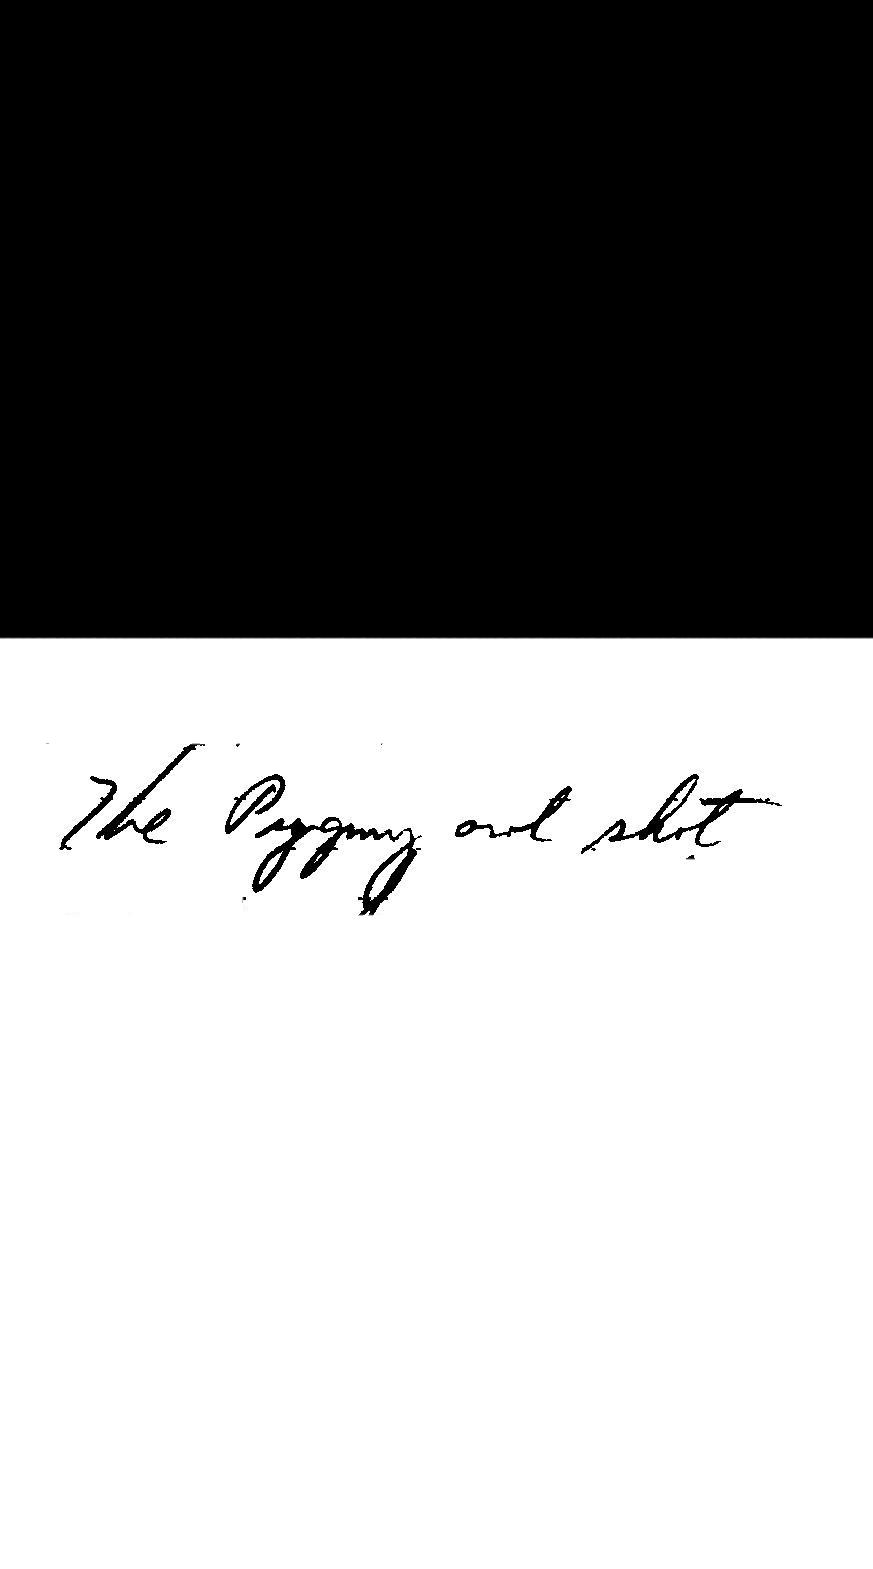 The Pygmy owl shot